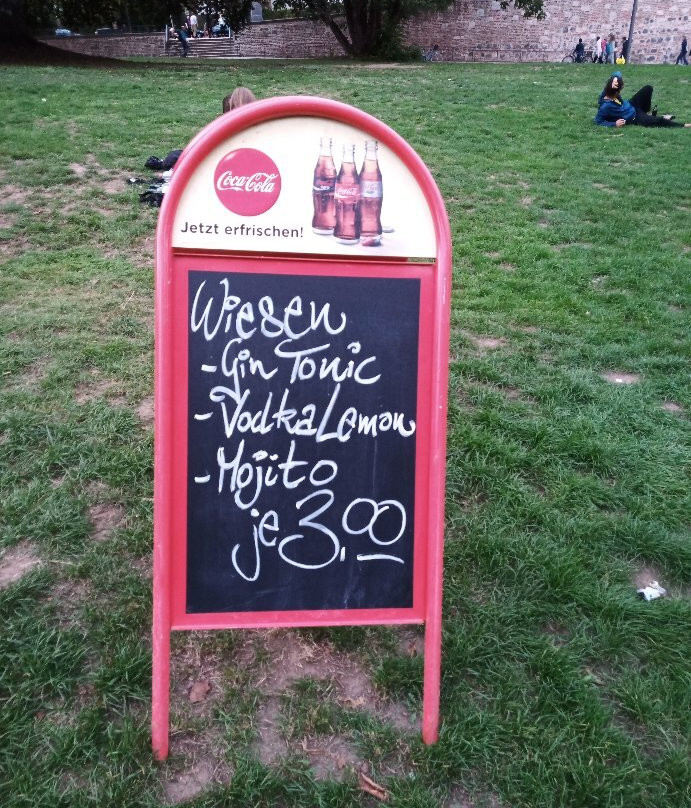 Coca-Cola
Jetzt erfrischen!
Wiesen
-Gin Tonic
-Vodka Lemon
-Mojito
je 3,00